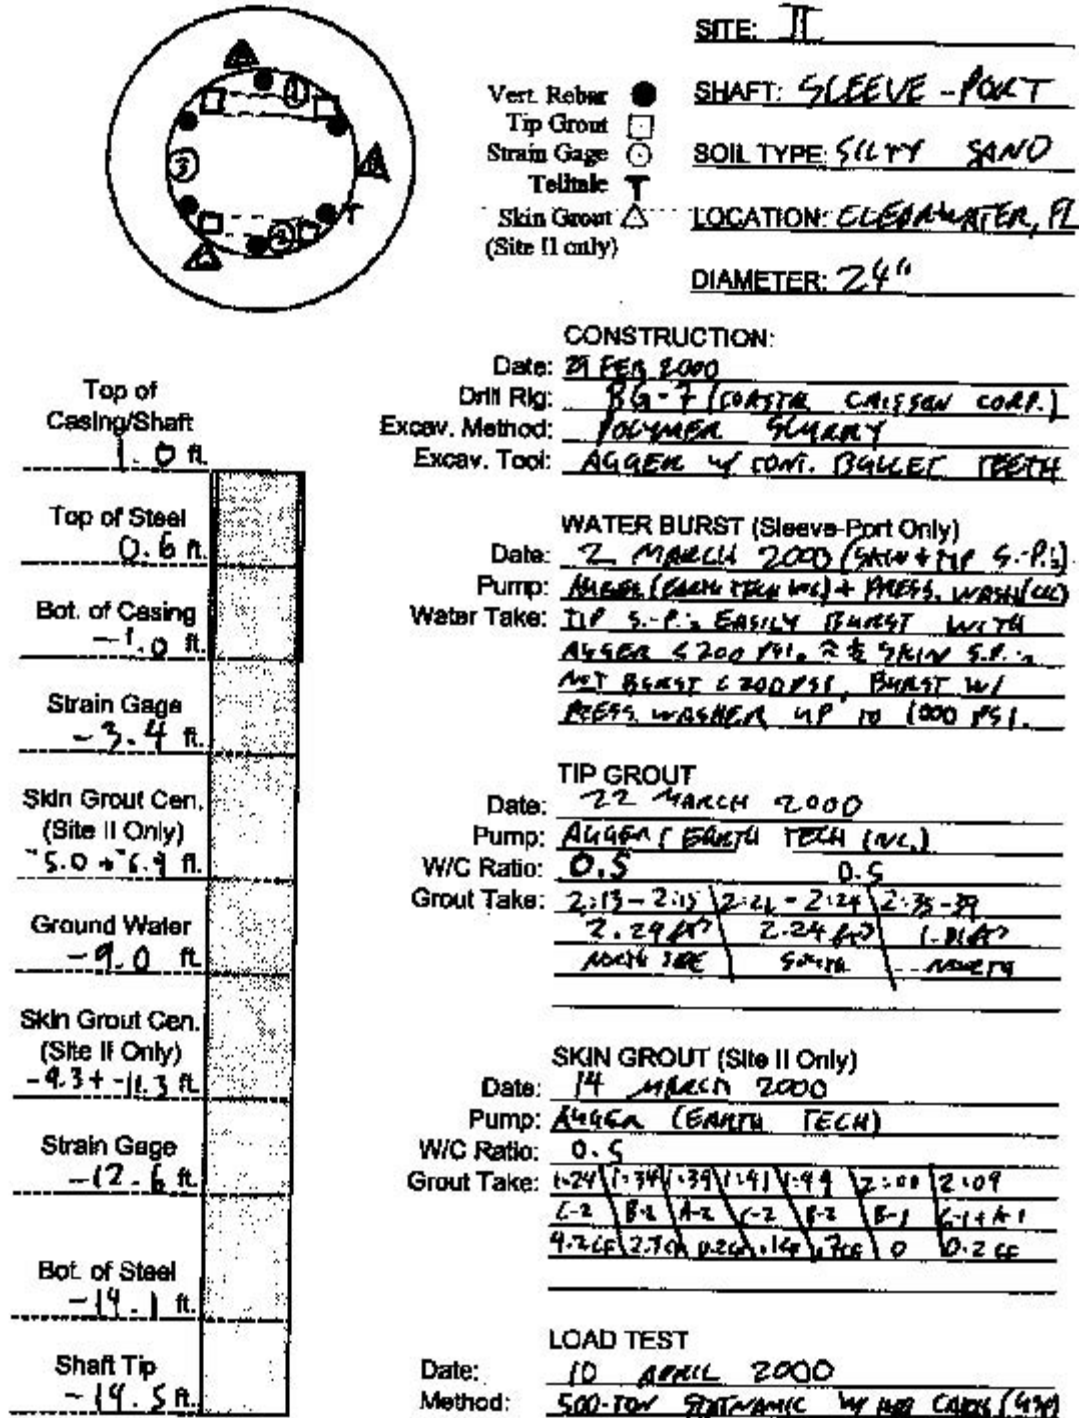 SITE: II
Vert. Rebar
SHAFT: SLEEVE-PORT
Tip Grout
Strain Gage
SOIL TYPE: SILTY SAND
Telltale
Skin Grout
(Site II only)
LOCATION: CLEARWATER, FL
DIAMETER: 24"
1
3
2
T
CONSTRUCTION:
Date: 29 FEB 2000
Drill Rig: BG-7 (COASTAL CAISSON CORP.)
Excav. Method: POLYMER SLURRY
Excav. Tool: AUGER W/ CONT. BULLET TEETH
WATER BURST (Sleeve-Port Only)
Date: 2 MARCH 2000 (SKIN + TIP S.-P.'s)
Pump: (EARTH TECH INC) + PRESS. WASH (CC)
Water Take: TIP S.-P.'s EASILY BURST WITH
≤ 200 PSI. ≈ ½ SKIN S.P.'s
NOT BURST 200 PSI, BURST W/
PRESS. WASHER UP TO 1000 PSI.
TIP GROUT
Date: 22 MARCH 2000
Pump: (EARTH TECH INC.)
W/C Ratio: 0.5 0.5
Grout Take: 2:13-2:15 2:21-2:24 2:35-39
2.29 ft³ 2.24 ft³
NORTH SIDE SOUTH NORTH
SKIN GROUT (Site II Only)
Date: 14 MARCH 2000
Pump: (EARTH TECH)
W/C Ratio: 0.5
Grout Take: 1:24 1:34 1:39 1:41 1:44 2:00 2:09
C-2 B-2 A-2 C-2 B-2 B-1 C-1+A-1
4.2 CF 2.7 CF 0.2 CF .1 CF .7 CF 0 0.2 CF
LOAD TEST
Date: 10 APRIL 2000
Method: 500-TON STATNAMIC W/
Top of
Casing/Shaft
1.0 ft.
Top of Steel
0.6 ft.
Bot. of Casing
-1.0 ft.
Strain Gage
-3.4 ft.
Skin Grout Cen.
(Site II Only)
-5.0 + -6.9 ft.
Ground Water
-9.0 ft.
Skin Grout Cen.
(Site II Only)
-9.3 + -11.3 ft.
Strain Gage
-12.6 ft.
Bot. of Steel
-14.1 ft.
Shaft Tip
-14.5 ft.